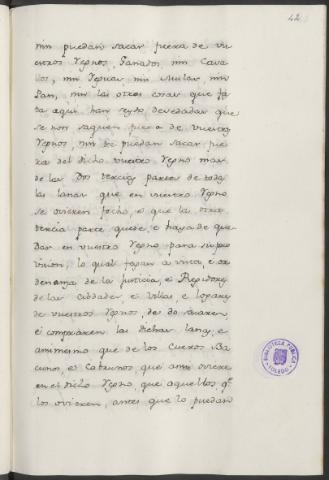 42
nin puedan sacar fuera de vu
estros Regnos, Ganados nin Cava
llos, nin Yeguas nin Mulas nin
Pan, nin las otras cosas que fas
ta aqui han seydo devedadas que
se non saquen fuera de vuestros
Regnos, nin se puedan sacar fue
ra del dicho vuestro Regno mas
de las Dos tercias partes de todas
las lanas que en vuestro Regno
se ovieren fecho, e que la otra
tercia parte quede, e haya de que
dar en vuestro Regno para su pro
vision, lo qual fagan a vista, e or
denansa de la Justicia, e Regidores
de las Cibdades, e Villas, e logares
de vuestros Regnos, de do sacaren,
e compraren las dichas lanas, e
ansimesmo que de los Cueros Ba
cunos, e Cabrunos, que ansi oviere
en el dicho Regno, que aquellos q.e
los ovieren, antes que lo puedan
BIBLIOTECA PUBLICA
TOLEDO